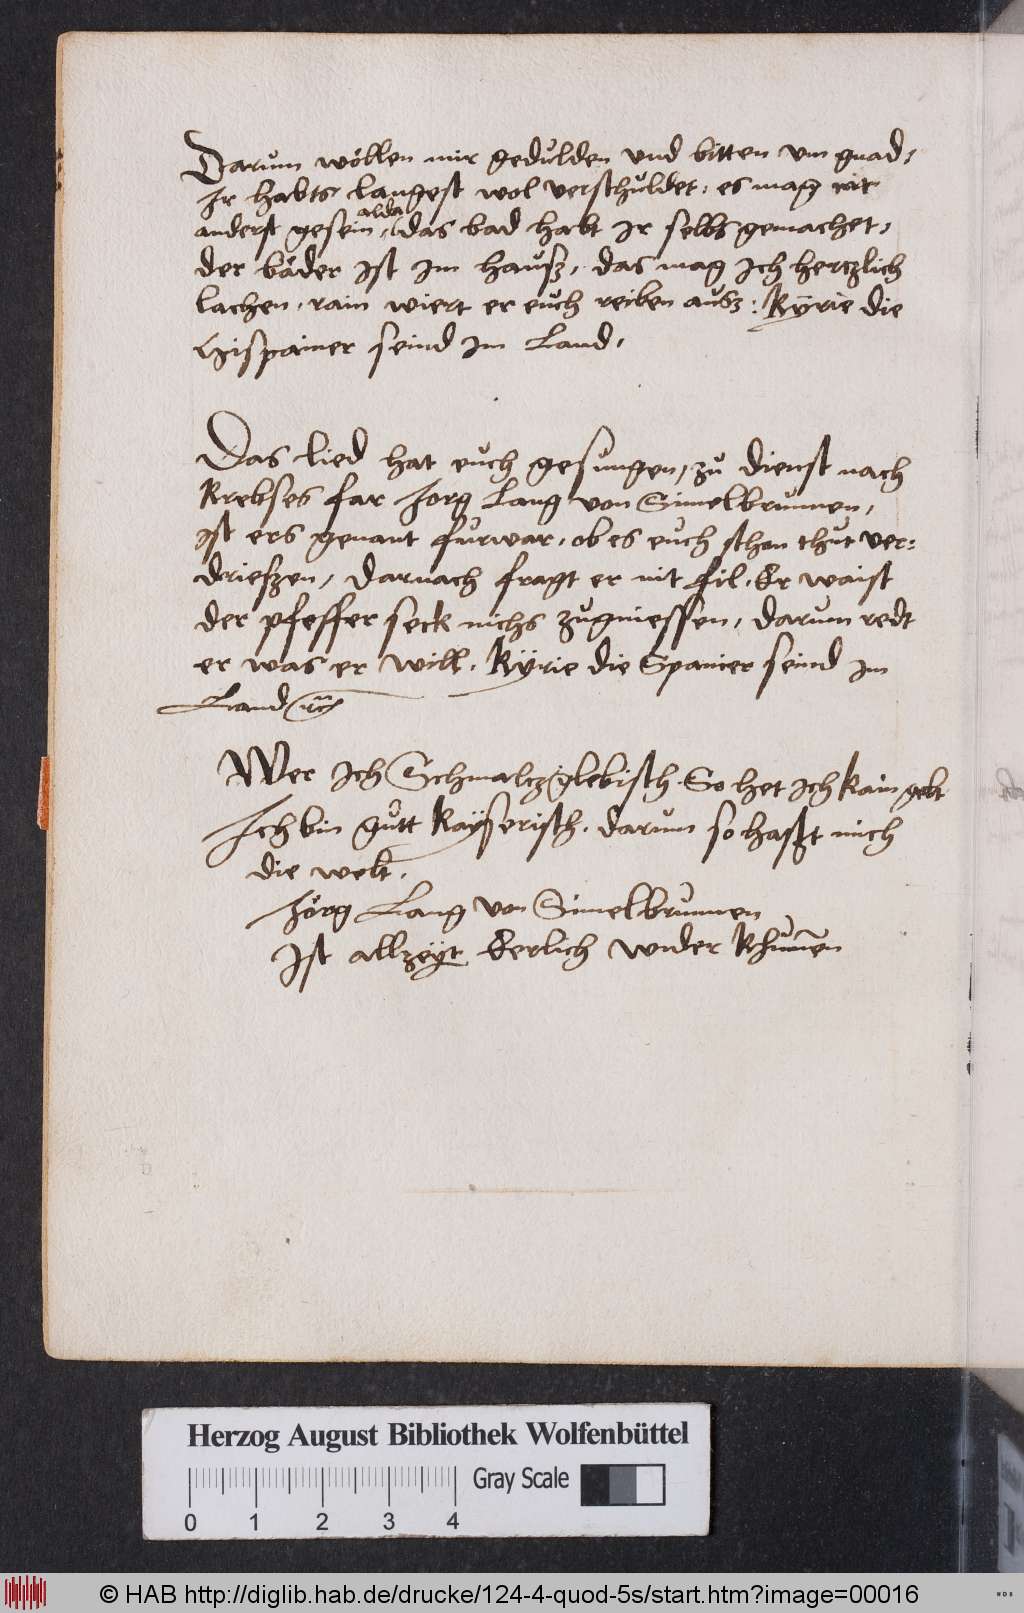 Darum wöllen mir gedulden vnd bitten vm gnad,
Ir habts langest wol verschuldet, es mag nit
alda
anderst gesein, das bad habt Ir selbs gemachet,
der bäder Ist Im hausz, das mag Ich hertzlich
lachen, rain wiert er euch reiben ausz: Kÿrie die
Hispainer seind Im Land,
Das lied hat euch gesungen, zu dienst nach
Krebses far Jorg Lang von Simelbrunnen,
Ist ers genant furwar, ob es euch schon thut ver=
drieszen, darnach fragt er nit fil. Er waist
der pfeffer seck nichs zugniessen, darum redt
er was er will. Kÿrie die Spanier seind Im
Land
Wer Ich Schmalczglebisch. So het Ich kain gelt
Ich bin gutt Kayserisch. darum so haszt mich
die welt.
Jörg Lang von Simelbrunnen
Ist allzeyt Eerlich wider Khumen
Herzog August Bibliothek Wolfenbüttel
Gray Scale
0 1 2 3 4
© HAB http://diglib.hab.de/drucke/124-4-quod-5s/start.htm?image=00016